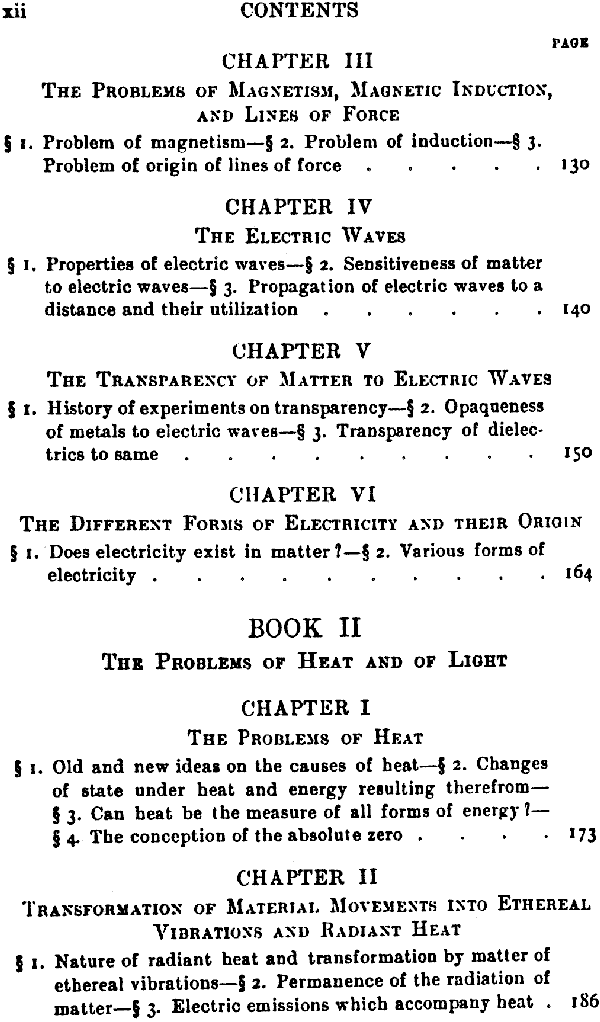 xii CONTENTS
PAGE
CHAPTER III
THE PROBLEMS OF MAGNETISM, MAGNETIC INDUCTION,
AND LINES OF FORCE
§ 1. Problem of magnetism—§ 2. Problem of induction—§ 3.
Problem of origin of lines of force . . . . . 130
CHAPTER IV
THE ELECTRIC WAVES
§ 1. Properties of electric waves—§ 2. Sensitiveness of matter
to electric waves—§ 3. Propagation of electric waves to a
distance and their utilization . . . . . . 140
CHAPTER V
THE TRANSPARENCY OF MATTER TO ELECTRIC WAVES
§ 1. History of experiments on transparency—§ 2. Opaqueness
of metals to electric waves—§ 3. Transparency of dielec-
trics to same . . . . . . . . . 150
CHAPTER VI
THE DIFFERENT FORMS OF ELECTRICITY AND THEIR ORIGIN
§ 1. Does electricity exist in matter?—§ 2. Various forms of
electricity . . . . . . . . . . 164
BOOK II
THE PROBLEMS OF HEAT AND OF LIGHT
CHAPTER I
THE PROBLEMS OF HEAT
§ 1. Old and new ideas on the causes of heat—§ 2. Changes
of state under heat and energy resulting therefrom—
§ 3. Can heat be the measure of all forms of energy?—
§ 4. The conception of the absolute zero . . . . 173
CHAPTER II
TRANSFORMATION OF MATERIAL MOVEMENTS INTO ETHEREAL
VIBRATIONS AND RADIANT HEAT
§ 1. Nature of radiant heat and transformation by matter of
ethereal vibrations—§ 2. Permanence of the radiation of
matter—§ 3. Electric emissions which accompany heat . 186